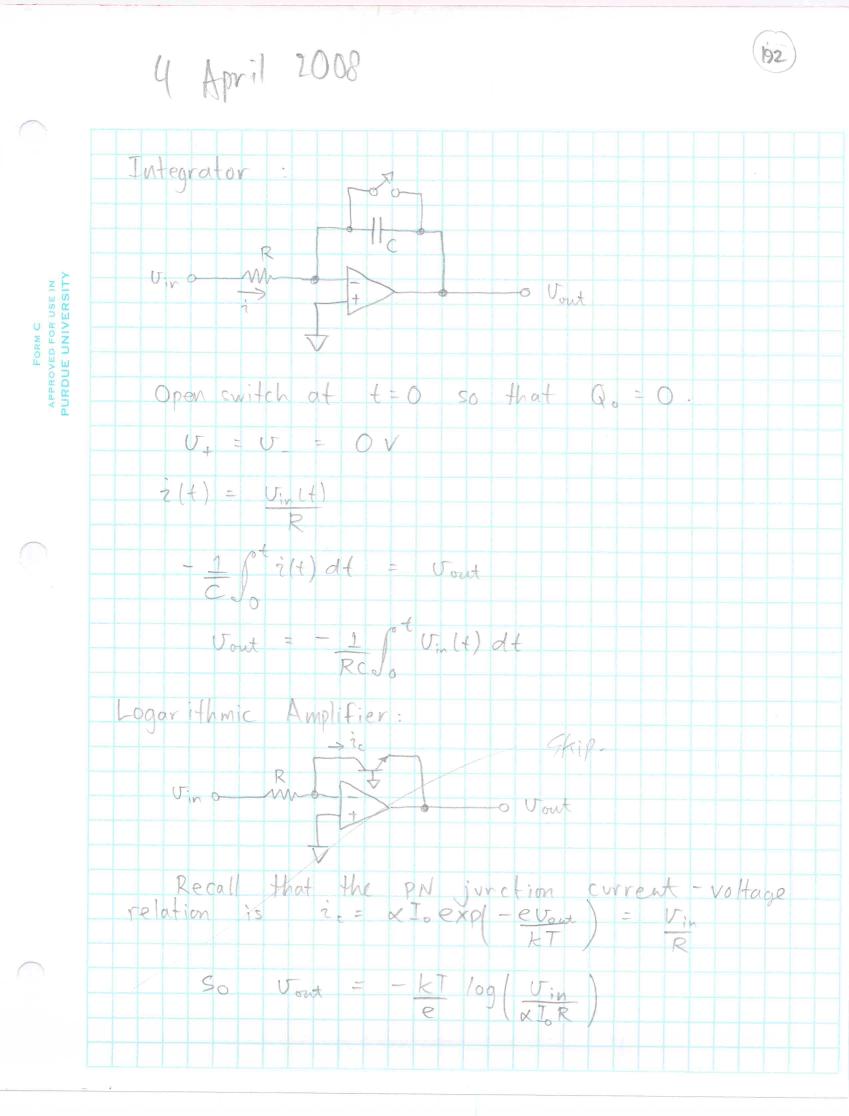 192
4 April 2008
FORM C
APPROVED FOR USE IN
PURDUE UNIVERSITY
Integrator :
C
R
Vin
i
-
+
Vout
Open switch at t=0 so that Q₀ = 0.
V₊ = V₋ = 0 V
i(t) = Vin(t)/R
- 1/C ∫₀ᵗ i(t) dt = Vout
Vout = - 1/RC ∫₀ᵗ Vin(t) dt
Logarithmic Amplifier :
Skip.
→ ic
R
Vin
-
+
Vout
Recall that the PN junction current-voltage
relation is ic = αI₀ exp(-eVout/kT) = Vin/R
So Vout = - kT/e log(Vin/αI₀R)